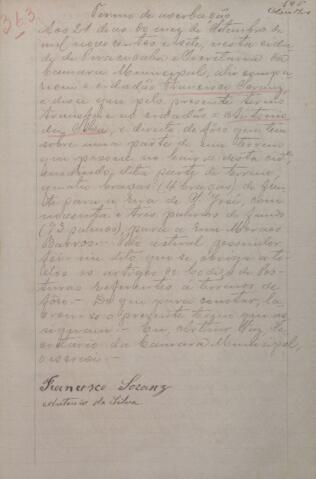 363
Termo de averbação
Aos 21 de as do mez de Setembro de
mil novecentos e sete, nesta cida
de de Piracicaba e Secretaria da
Camara Municipal, ahi compa
receu o cidadão Francisco Soranz,
e disse que pelo presente termo
transfere ao cidadão Antonio
da Silva, o direito de fôro que tem
sobre uma parte de um terreno
que possue no bairro desta cida
de, dita parte de terreno,
quatro braças (4 braças) de fren
te para a rua de S. José, com
e tres palmos de fundo
(73 palmos), para a rua Moraes
Barros. possuidor
dito que se obriga a to
dos os artigos do Codigo de Pos
turas referentes a terrenos de
fôro. De que para constar, la
vrou-se o presente termo que as
signam. Eu, Arthur Vaz, Se
cretario da Camara Municipal,
o escrevi.
Francisco Soranz
Antonio da Silva